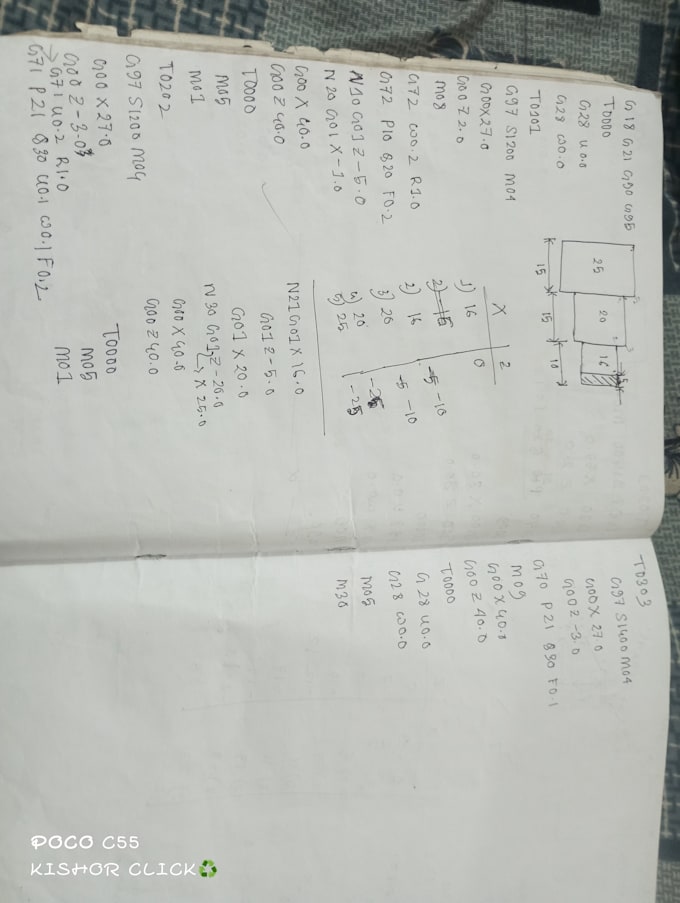 G18 G21 G90 G95
T0000
G28 U0.0
G28 W0.0
T0101
G97 S1200 M04
G00X27.0
G00Z2.0
M08
G72 W0.2 R1.0
G72 P10 Q20 F0.2
N10 G01 Z-5.0
N20 G01 X-1.0
G00 X40.0
G00Z40.0
T0000
M05
M01
T0202
G97 S1200 M04
G00 X27.0
G00 Z-3.0
G71 U0.2 R1.0
G71 P21 Q30 U0.1 W0.1 F0.2
25
20
16
5
15
15
10
X Z
1) 16 0
2) 15 -5 -10
2) 16 -5 -10
3) 20
4) 20 -25
5) 25 -25
N21 G01 X16.0
G01 Z-5.0
G01 X20.0
N30 G01 Z-20.0
X25.0
G00 X40.0
G00Z40.0
T0000
M05
M01
T0303
G97 S1400 M04
G00X27.0
G00Z-3.0
G70 P21 Q30 F0.1
M09
G00X40.0
G00Z40.0
T0000
G28 U0.0
G28 W0.0
M05
M30
POCO C55
KISHOR CLICK♻️